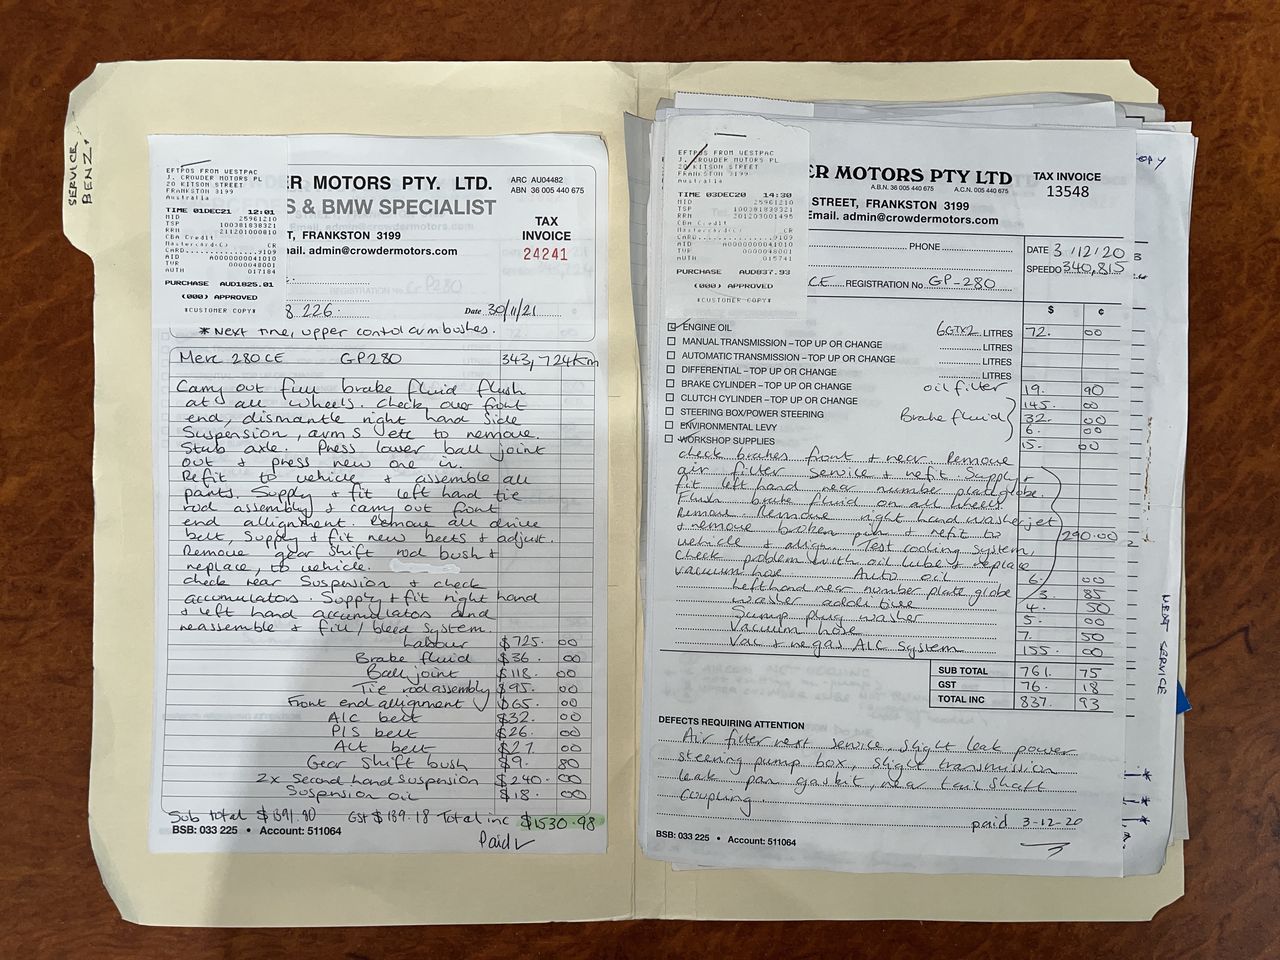 SERVICE
BENZ.
EFTPOS FROM WESTPAC
J. CROWDER MOTORS PL
20 KITSON STREET
FRANKSTON 3199
Australia
TIME 01DEC21 12:01
MID 25961210
TSP 100381838321
RRN 211201000810
CBA Credit
Mastercard(C) CR
CARD............9109
AID A0000000041010
TVR 0000048001
AUTH 017184
PURCHASE AUD1825.01
(000) APPROVED
*CUSTOMER COPY*
ER MOTORS PTY. LTD.
ARC AU04482
ABN 36 005 440 675
S & BMW SPECIALIST
TAX
INVOICE
24241
T, FRANKSTON 3199
ail. admin@crowdermotors.com
REGISTRATION No. GP280
8 226.
Date 30/11/21
* Next time, upper control arm bushes.
Merc 280CE GP280 343,724Km
Carry out full brake fluid flush
at all wheels. Check over front
end, dismantle right hand side
Suspension, arms etc to remove.
Stub axle. Press lower ball joint
out & press new one in.
Refit to vehicle & assemble all
parts. Supply & fit left hand tie
rod assembly & carry out front
end allignment. Remove all drive
belt, Supply & fit new beets & adjust.
Remove gear shift rod bush &
replace, to vehicle.
check rear Suspension & check
accumulators. Supply & fit right hand
& left hand accumulators and
reassemble & fill/bleed system.
Labour $725. 00
Brake fluid $36. 00
Ball joint $118. 00
Tie rod assembly $95. 00
Front end allignment $65. 00
A/C belt $32. 00
P/S belt $26. 00
Alt belt $27 00
Gear shift bush $9. 80
2x Second hand suspension $240. 00
Suspension oil $18. 00
Sub total $1391.80 Gst $139.18 Total inc $1530.98
BSB: 033 225 • Account: 511064
Paid
EFTPOS FROM WESTPAC
J. CROWDER MOTORS PL
20 KITSON STREET
FRANKSTON 3199
Australia
TIME 03DEC20 14:30
MID 25961210
TSP 100381838321
RRN 201203001495
CBA Credit
Mastercard(C) CR
CARD............9109
AID A0000000041010
TVR 0000048001
AUTH 015741
PURCHASE AUD837.93
(000) APPROVED
*CUSTOMER COPY*
ER MOTORS PTY LTD
A.B.N. 36 005 440 675 A.C.N. 005 440 675
TAX INVOICE
13548
STREET, FRANKSTON 3199
Email. admin@crowdermotors.com
PHONE
DATE 3/12/20
SPEEDO 340,815
CE REGISTRATION No GP-280
$ ¢
ENGINE OIL 6GTX2 LITRES 72. 00
MANUAL TRANSMISSION – TOP UP OR CHANGE LITRES
AUTOMATIC TRANSMISSION – TOP UP OR CHANGE LITRES
DIFFERENTIAL – TOP UP OR CHANGE LITRES
BRAKE CYLINDER – TOP UP OR CHANGE oil filter 19. 90
CLUTCH CYLINDER – TOP UP OR CHANGE 145. 00
STEERING BOX/POWER STEERING Brake fluid 32. 00
ENVIRONMENTAL LEVY 6. 00
WORKSHOP SUPPLIES 15. 00
check brakes front & rear. Remove
air filter Service & refit Supply &
fit left hand rear number plate globe.
Flush brake fluid on all wheels.
Remove right hand washer jet
& remove broken pin & refit to
vehicle & align. Test cooling system,
290.00
Check problem with oil lube & replace
vacuum hose Auto oil 6. 00
Left hand rear number plate globe 3. 85
washer additive 4. 50
Sump plug washer 5. 00
Vacuum hose 7. 50
Vac & regas A/C System 155. 00
SUB TOTAL 761. 75
GST 76. 18
TOTAL INC 837. 93
DEFECTS REQUIRING ATTENTION
Air filter next service, slight leak power
steering pump box, slight transmission
leak pan gasket, rear tailshaft
coupling.
paid 3-12-20
BSB: 033 225 • Account: 511064
COPY
LAST SERVICE